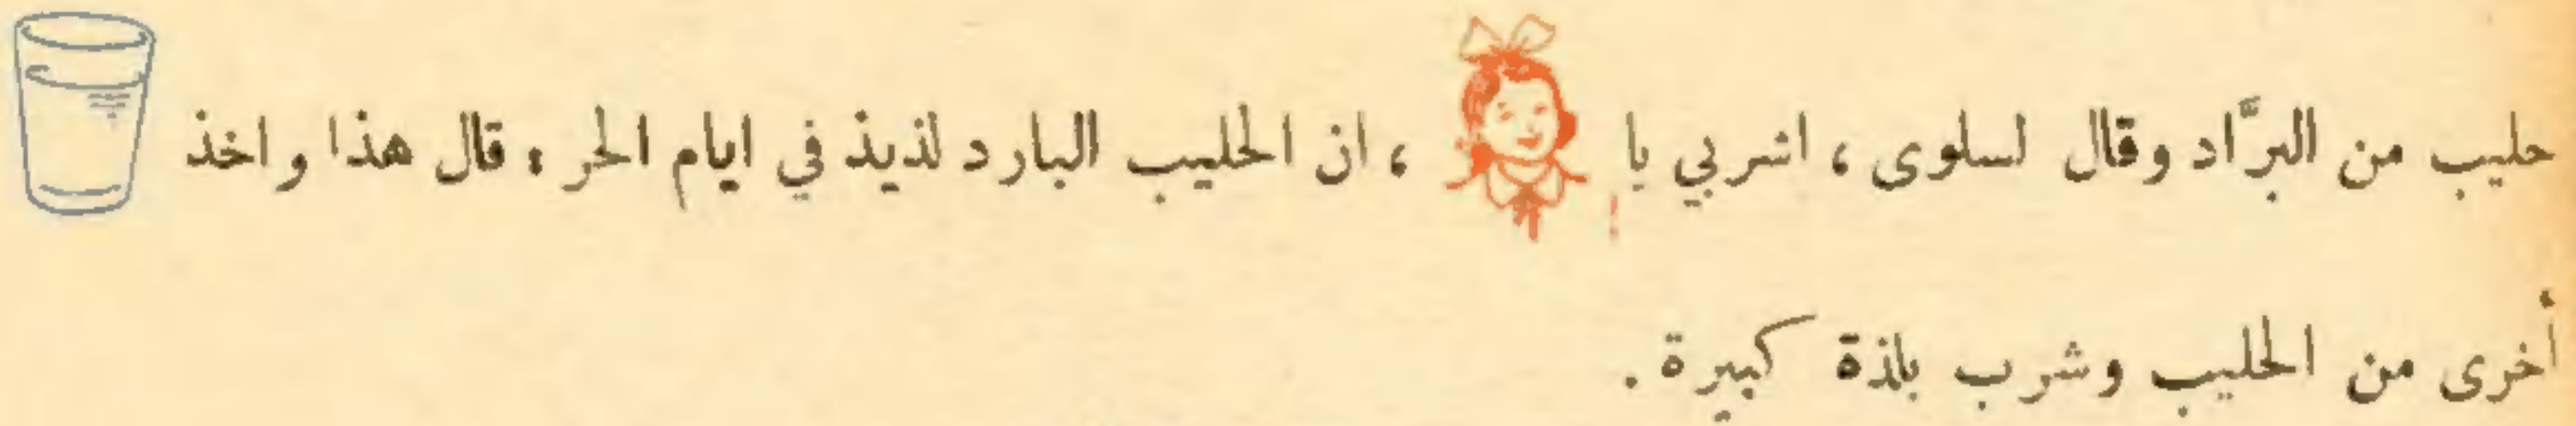 حليب من البرَّاد وقال لسلوى ، اشربي يا ، ان الحليب البارد لذيذ في ايام الحر . قال هذا واخذ
أخرى من الحليب وشرب بلذة كبيرة .